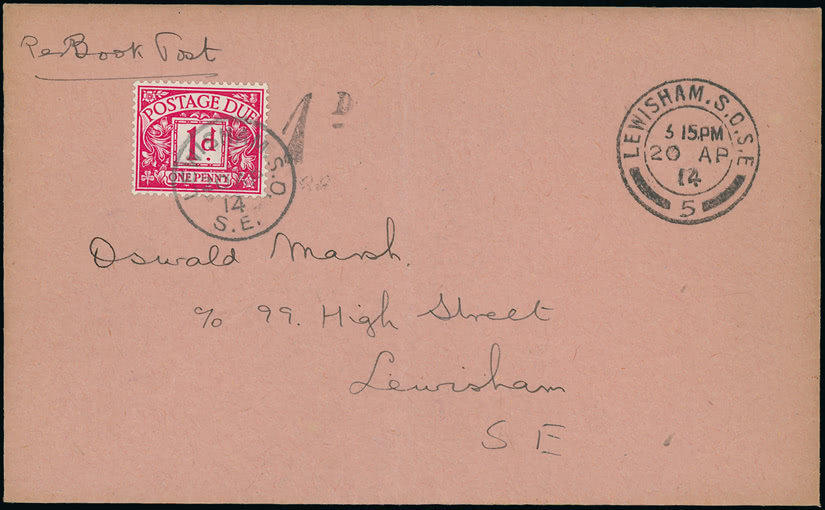 Per Book Post
POSTAGE DUE
1d
ONE PENNY
1D
14
S.E.
LEWISHAM.S.O.S.E
3 15.PM
20 AP
14
5
Oswald Marsh.
c/o 99. High Street
Lewisham
S E